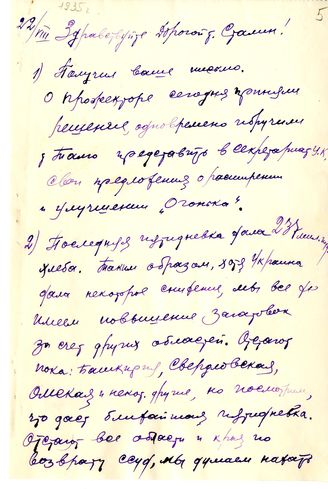 1935 г.
5
22/VIII Здравствуйте Дорогой т. Сталин!
1) Получил ваше письмо.
О Прожекторе сегодня приняли
решение, одновременно поручили
т. Талю представить в Секретариат ЦК
свои предложения о расширении
и улучшении „Огонька".
2) Последняя пятидневка дала 237 мил. пуд.
хлеба. Таким образом, хотя Украина
дала некоторое снижение, мы все же
имеем повышение заготовок
за счет других областей. Отстают
пока: Башкирия, Свердловская,
Омская и некот. другие, но посмотрим,
что даст ближайшая пятидневка.
Отстают все области и края по
возврату ссуд, мы думаем нажать